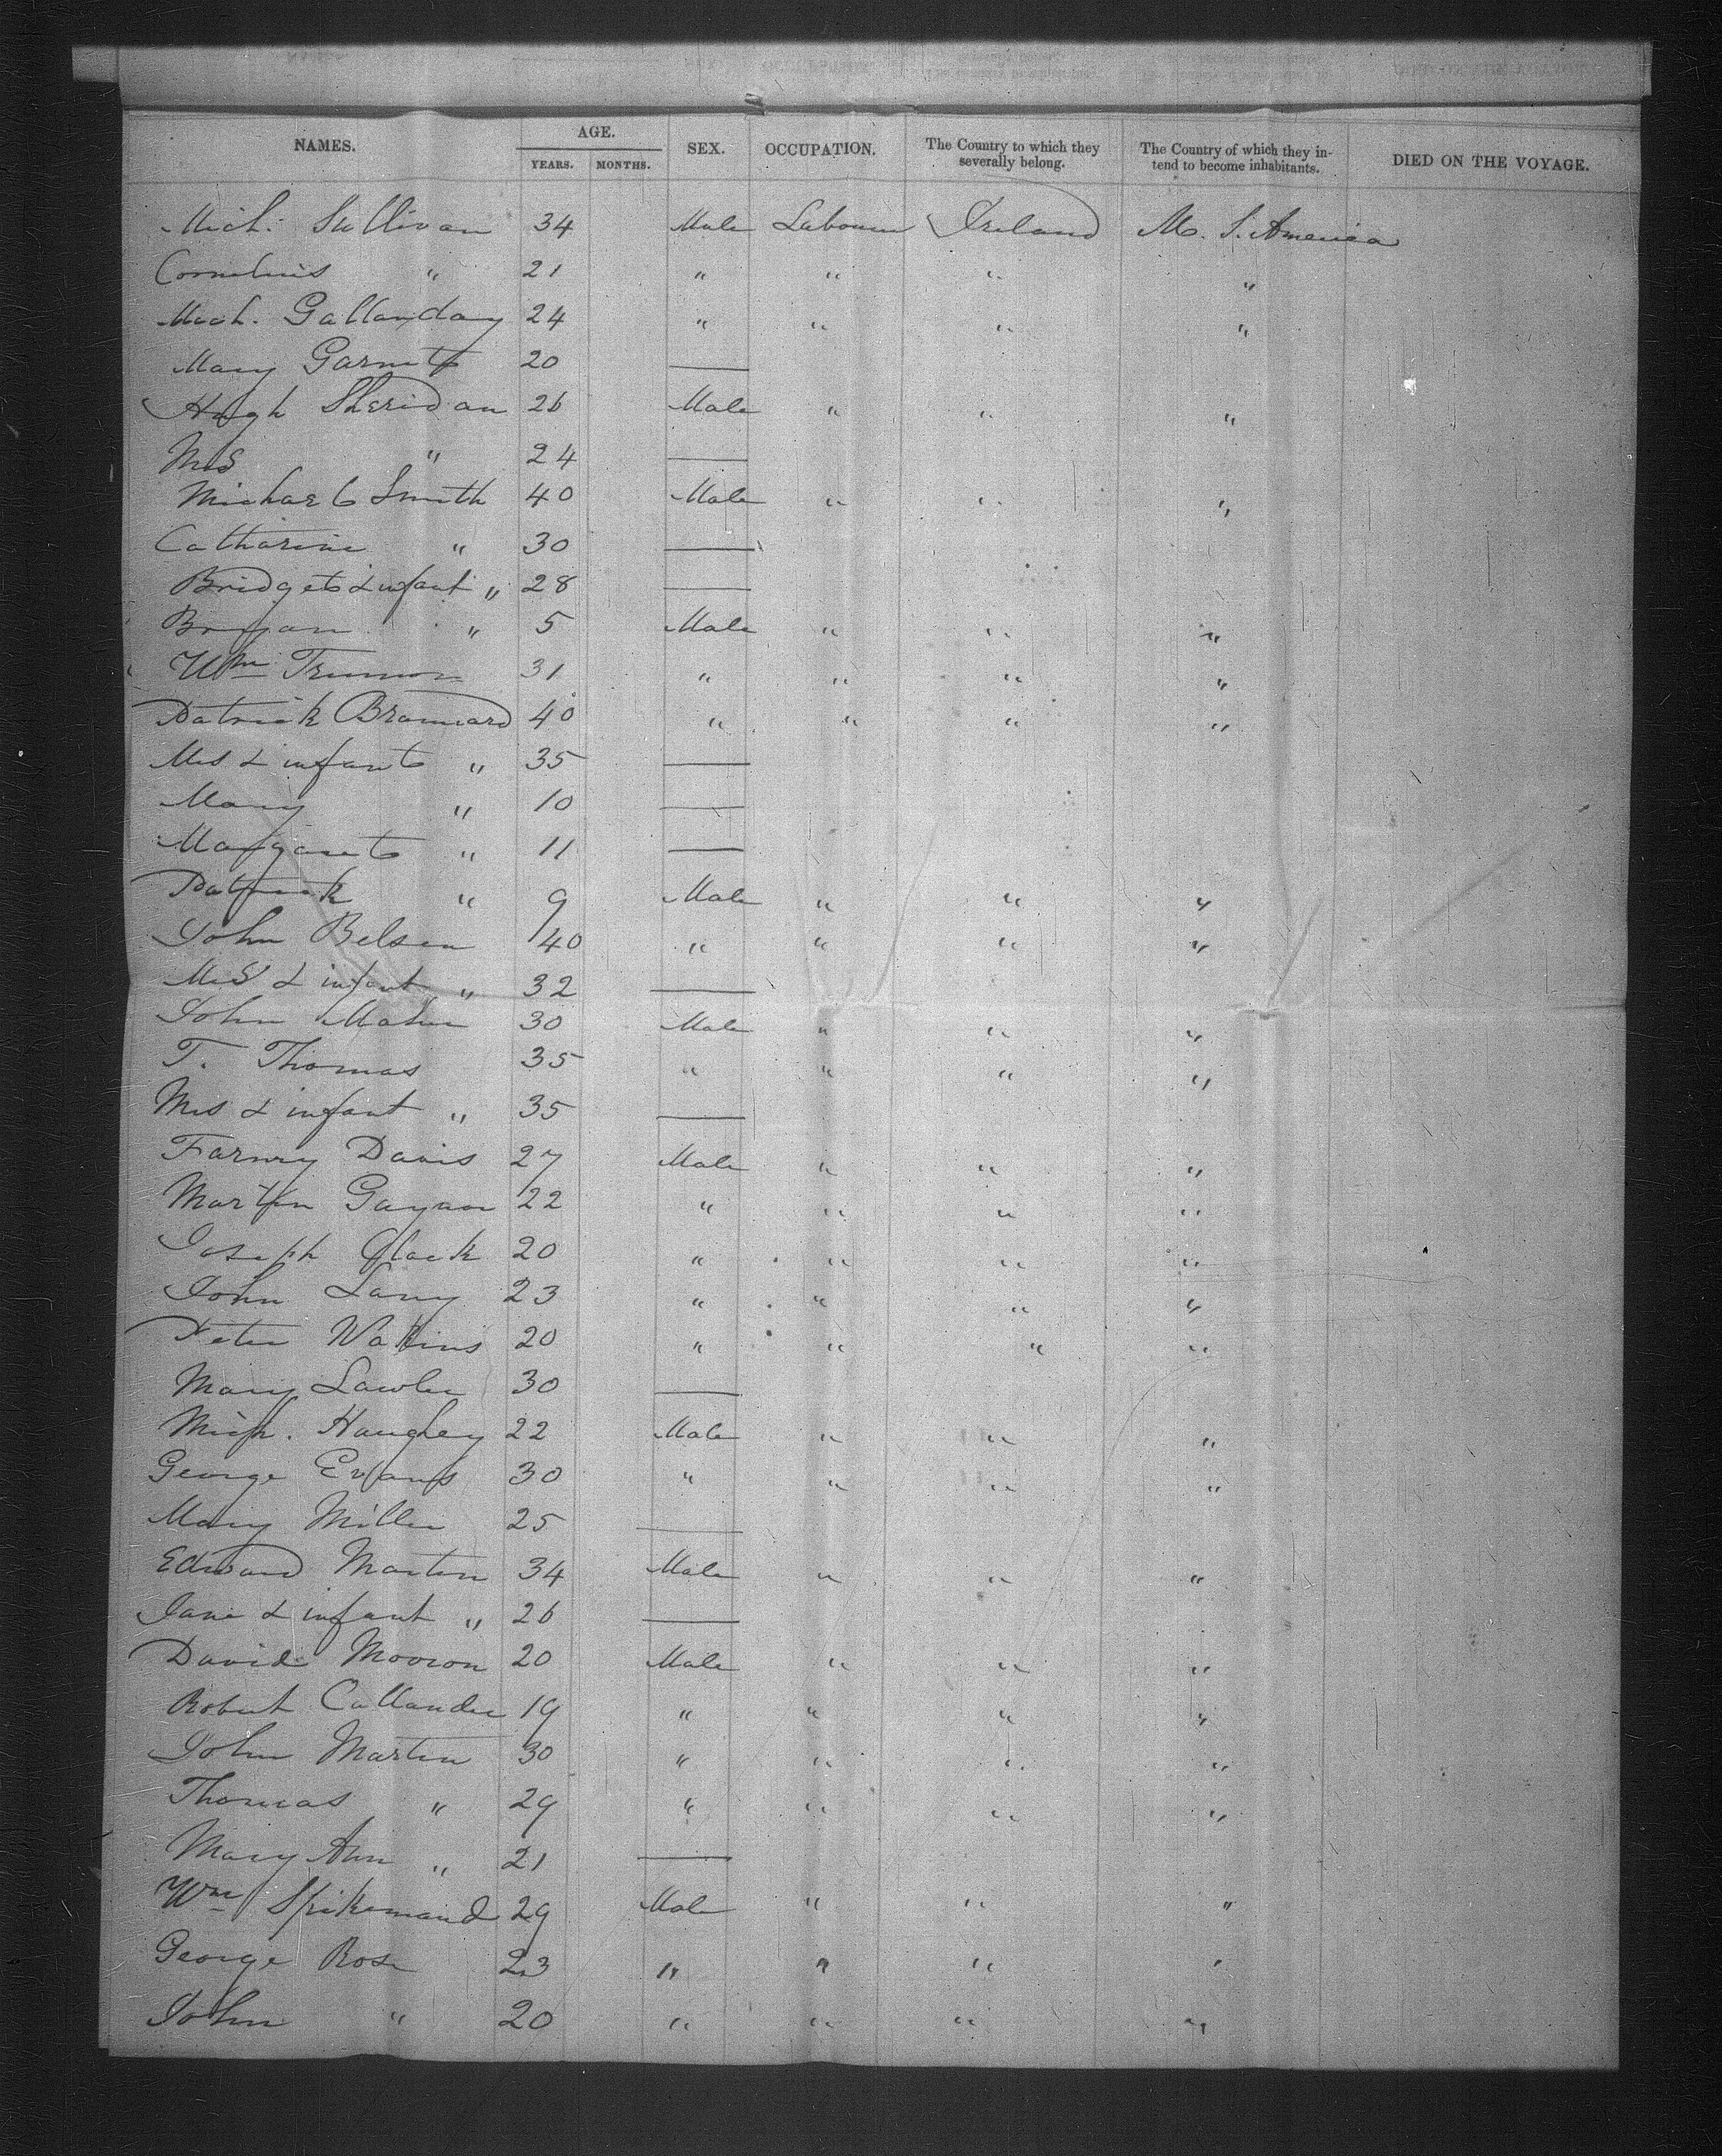 NAMES. AGE. SEX. OCCUPATION. The Country to which they severally belong. The Country of which they intend to become inhabitants. DIED ON THE VOYAGE.
YEARS. MONTHS.
Mich. Sullivan 34 Male Labourer Ireland U. S. America
Cornelius " 21 " " " "
Mich. Gallanday 24 " " " "
Mary Garnet 20 —
Hugh Sheridan 26 Male " " "
Mrs " 24 —
Michael Smith 40 Male " " "
Catharine " 30 —
Bridget & infant " 28 —
Bryan " 5 Male " " "
Wm 31 " " " "
Patrick Branniard 40 " " " "
Mrs & infant " 35 —
Mary " 10 —
Margaret " 11 —
Patrick " 9 Male " " "
John Belsen 40 " " " "
Mrs & infant " 32 —
John Maher 30 Male " " "
T. Thomas 35 " " " "
Mrs & infant " 35 —
Davis 27 Male " " "
Martin Gayan 22 " " " "
Joseph Glack 20 " " " "
John 23 " " " "
Peter Watkins 20 " " " "
Mary Lawler 30 —
Mich. Haughey 22 Male " " "
George Evans 30 " " " "
Mary Miller 25 —
Edward Martin 34 Male " " "
Jane & infant " 26 —
David Mooron 20 Male " " "
Robert Callander 19 " " " "
John Martin 30 " " " "
Thomas " 29 " " " "
Mary Ann " 21 —
Wm Spikemand 29 Male " " "
George Rose 23 " " " "
John " 20 " " " "